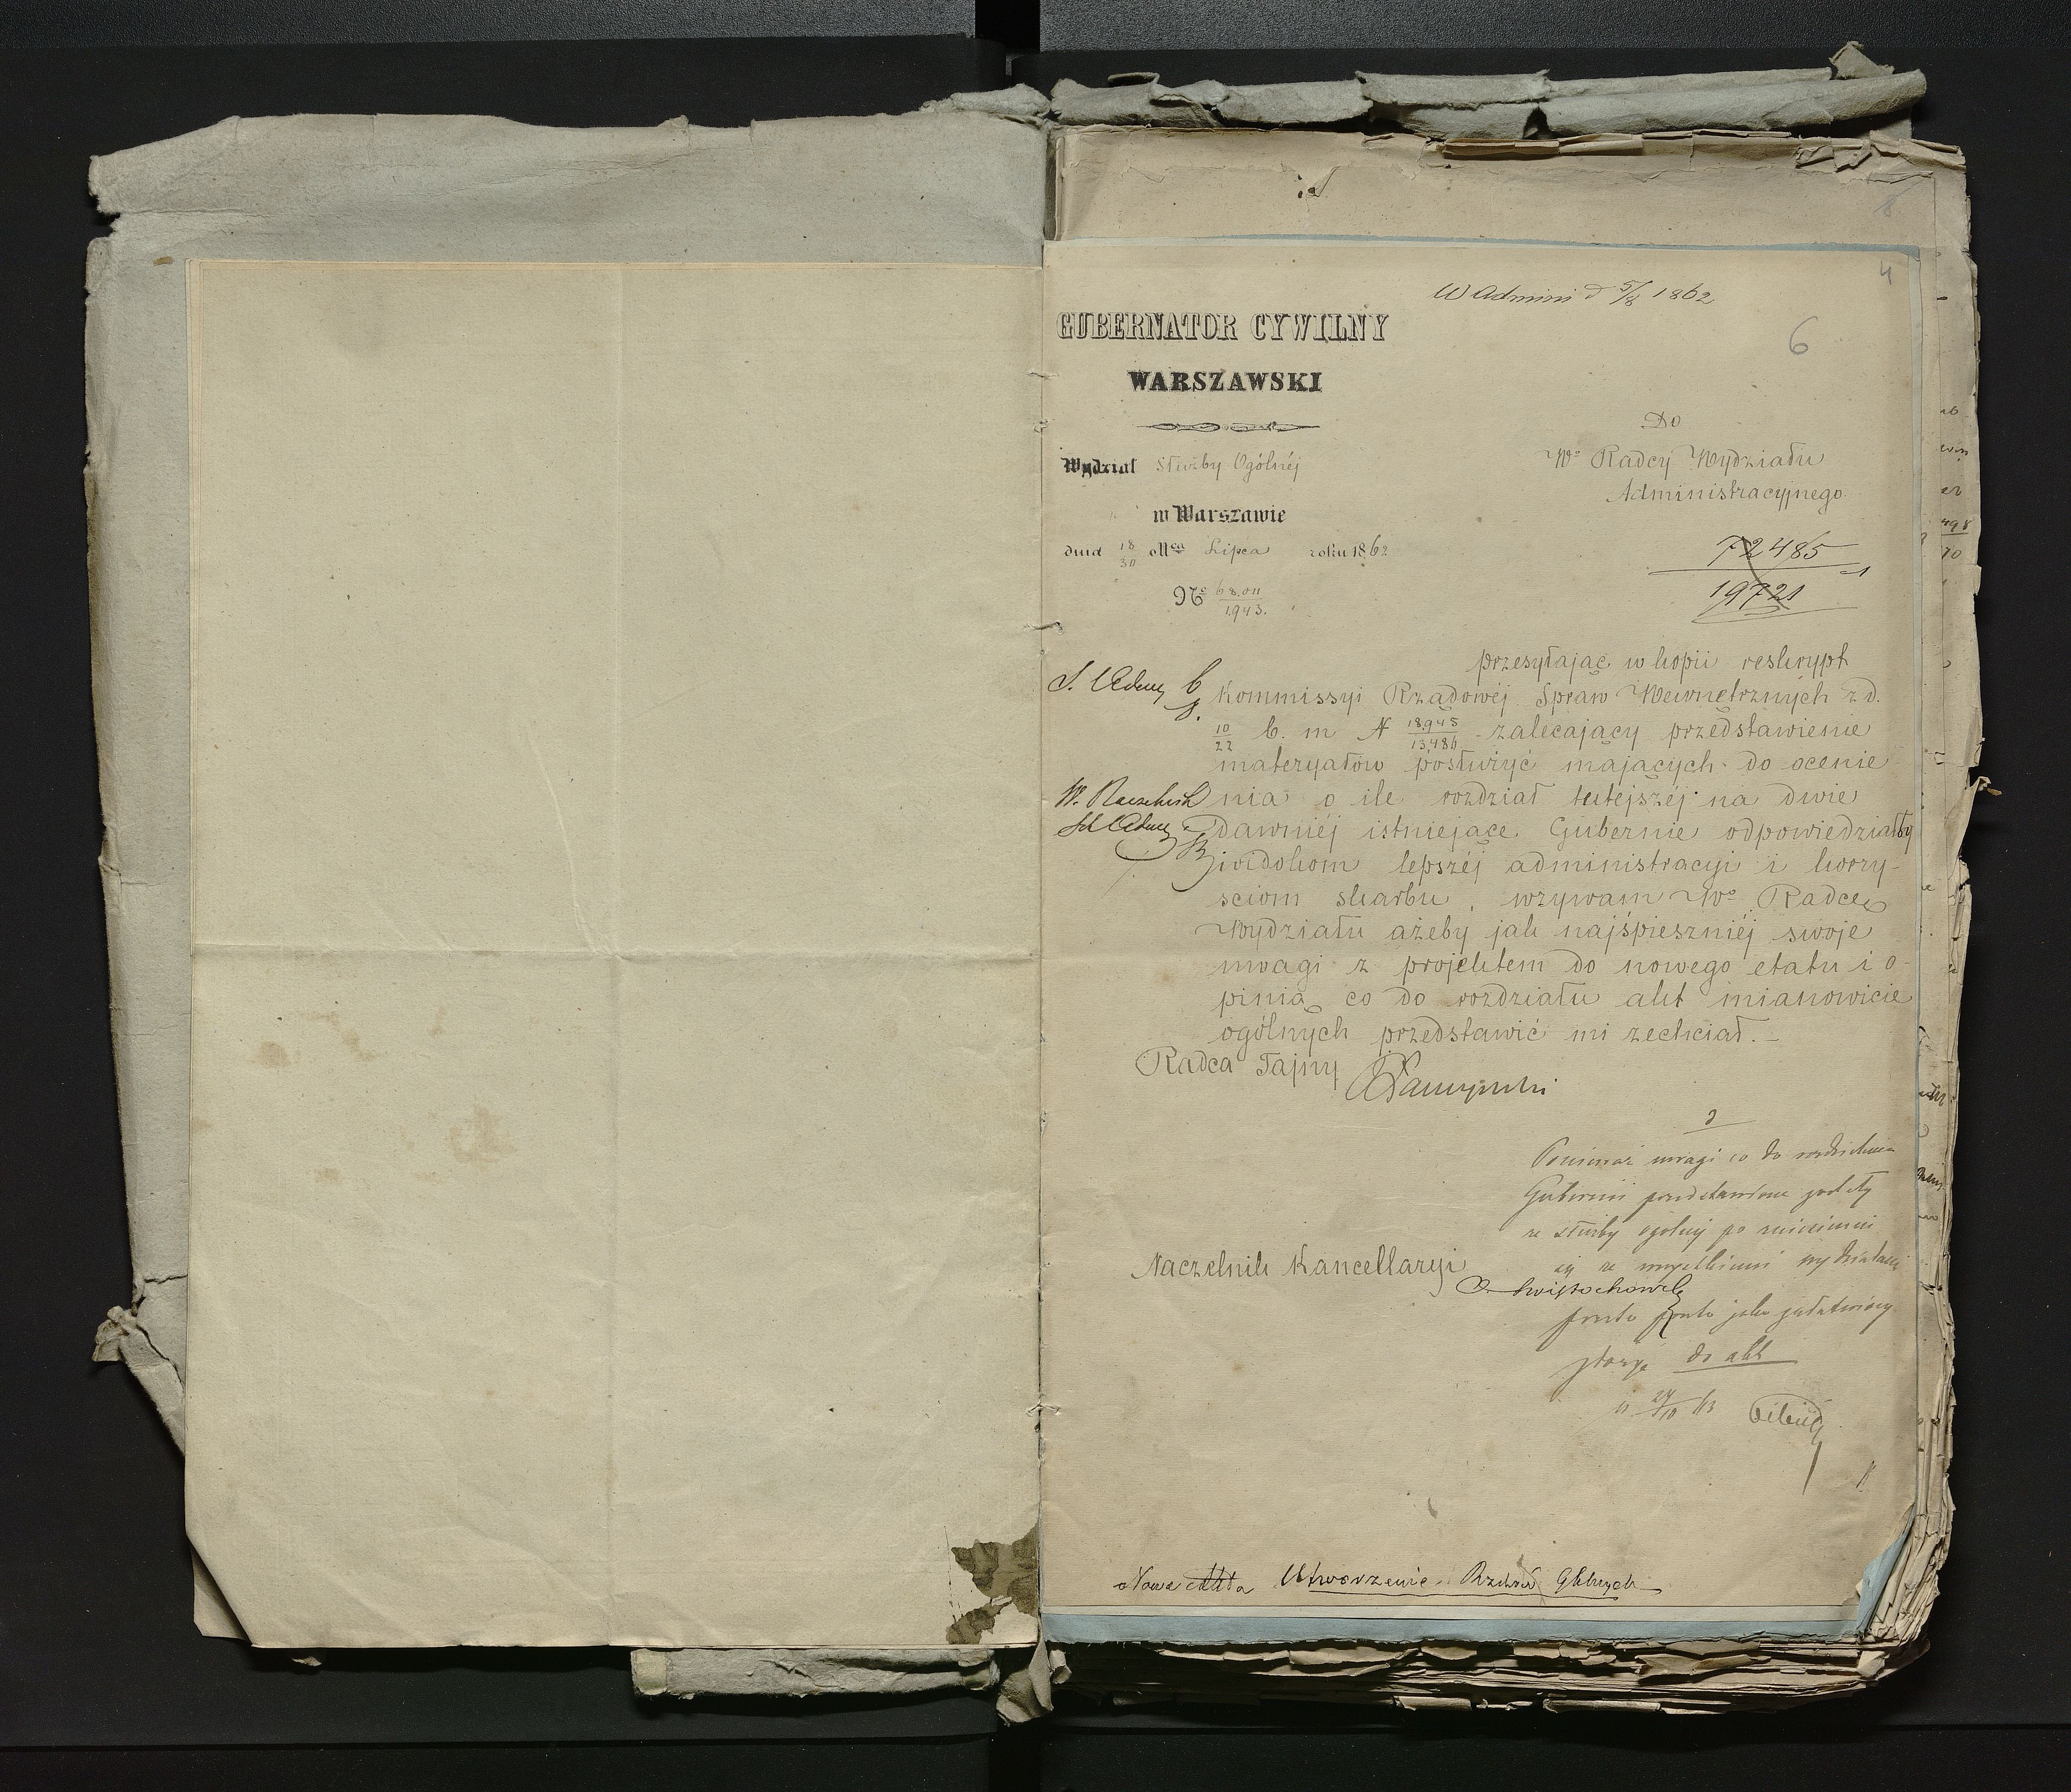 W Admini d 5/8 1862
4
6
GUBERNATOR CYWILNY
WARSZAWSKI
Wydział Służby Ogólnéj
w Warszawie
dnia 18/30 Mca Lipca roku 1862
No 68.011/1.943.
Do
Wo Radcy Wydziału
Administracyjnego
72485
19721
przesyłając w kopii reskrypt
Kommissyi Rządowéj Spraw Wewnętrznych z d.
10/22 b. m N 18.945/13.486 zalecający przedstawienie
materyałów posłużyć mających do ocenie
nia o ile rozdział tutejszéj na dwie
dawniéj istniejące Gubernie odpowiedziałby
widokom lepszéj administracyi i korzy-
ściom skarbu, wzywam Wo Radcę
Wydziału ażeby jak najśpieszniéj swoje
uwagi z projektem do nowego etatu i o-
pinią co do rozdziału akt mianowicie
ogólnych przedstawić mi zechciał.-
Radca Tajny
Ponieważ uwagi co do rozdzielenia
Gubernii przedstawione zostały
ze służby ogólnej po zniesieniu
się ze wszystkiemi wydziałami
Naczelnik Kancellaryi
przeto jako załatwiony
do akt
24/10 63
Nowe Akta Utworzenie Rządów Gubnych